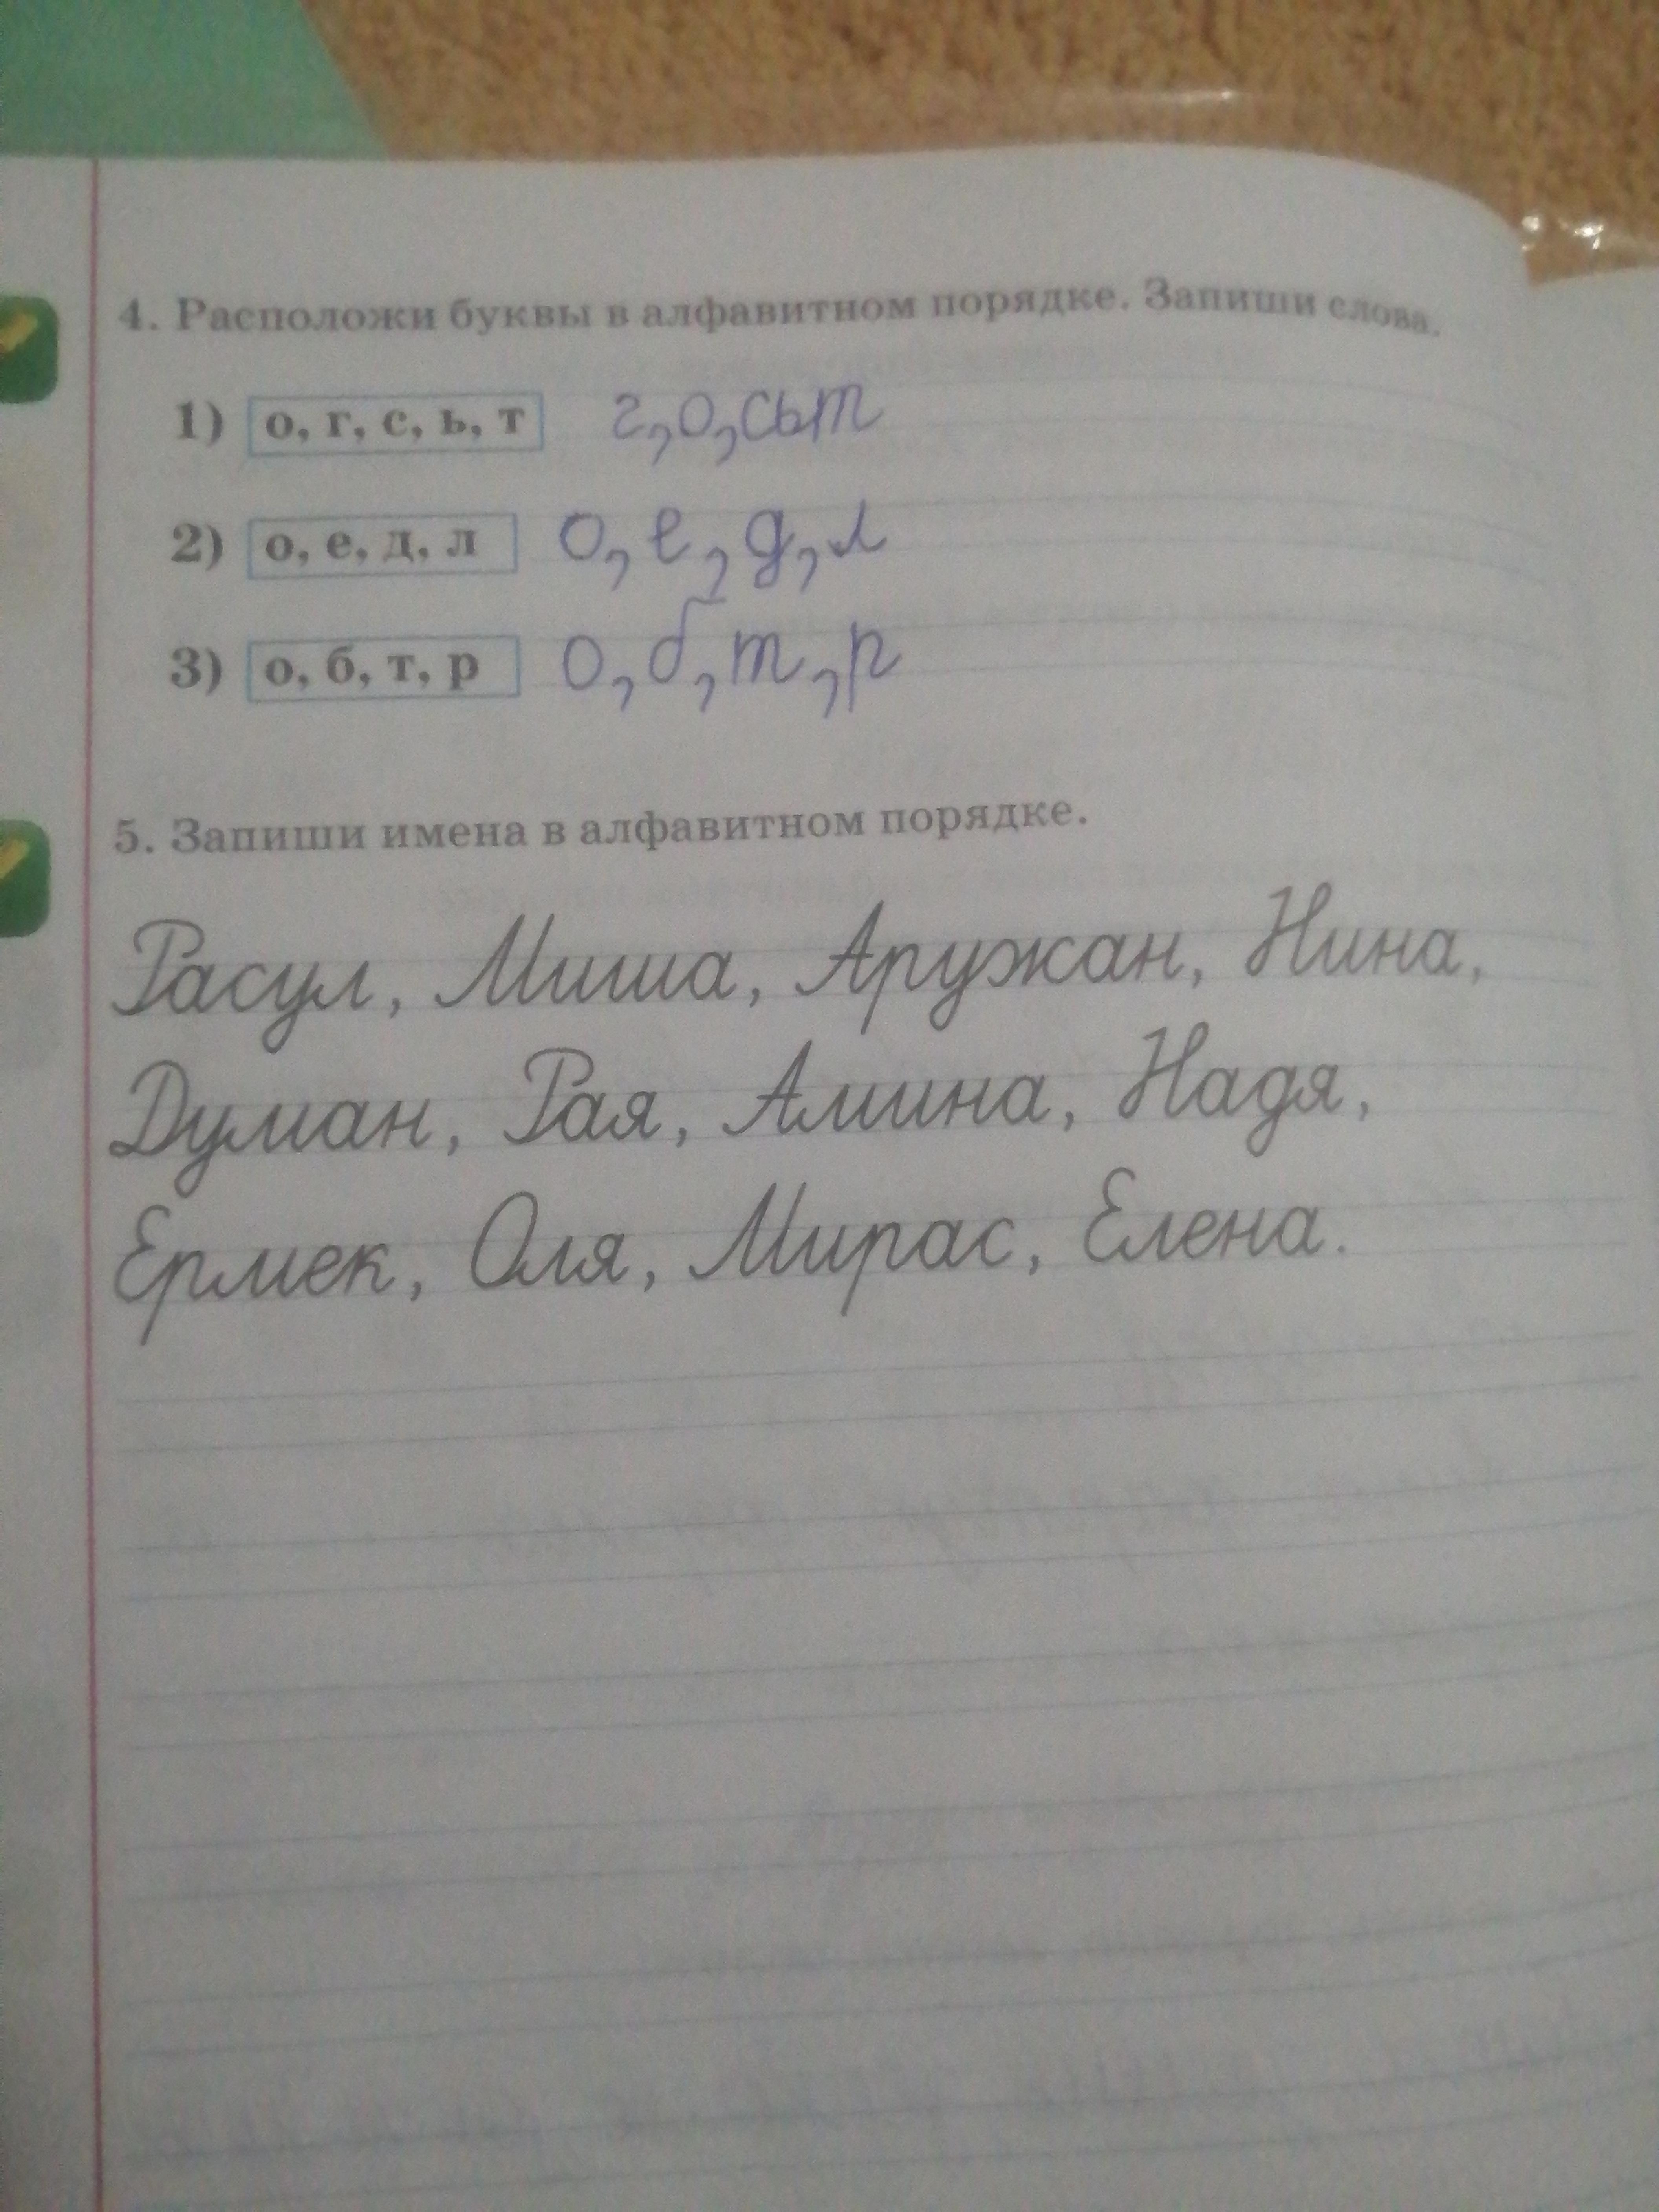 4. Расположи буквы в алфавитном порядке. Запиши слова.
1) о, г, с, ь, т г,о,сьт
2) о, е, д, л о,е,д,л
3) о, б, т, р о,б,т,р
5. Запиши имена в алфавитном порядке.
Расул, Миша, Аружан, Нина,
Думан, Рая, Амина, Надя,
Ермек, Оля, Мирас, Елена.